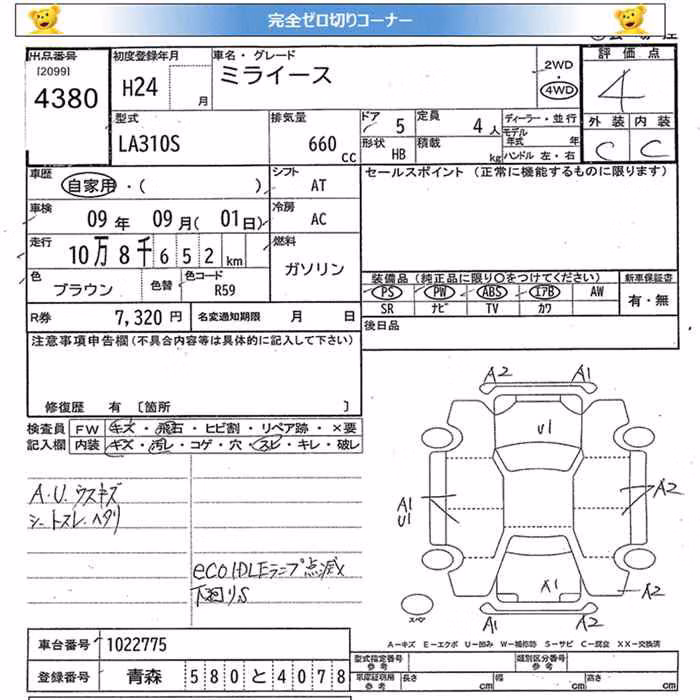 完全ゼロ切りコーナー
出品番号
[2099]
4380
初度登録年月
H24
月
車名・グレード
ミライース
2WD
4WD
評価点
4
型式
LA310S
排気量
660
cc
ドア
5
定員
4 人
形状
HB
積載
kg
ディーラー・並行
モデル
年式 年
ハンドル 左・右
外装 内装
C C
車歴
自家用・( )
シフト
AT
車検
09 年 09 月 ( 01 日)
冷房
AC
走行
10万8千652 km
燃料
ガソリン
色
ブラウン
色替
色コード
R59
R券 7,320 円 名変通知期限 月 日
セールスポイント (正常に機能するものに限ります)
装備品 (純正品に限り○をつけてください)
新車保証書
PS PW ABS エアB AW
有・無
SR ナビ TV カワ
後日品
注意事項申告欄(不具合内容等は具体的に記入して下さい)
修復歴 有 〔箇所 〕
検査員
記入欄
FW キズ・飛石・ヒビ割・リペア跡・×要
内装 キズ・汚レ・コゲ・穴・スレ・キレ・破レ
A.U.ウスキズ
シートスレ.ヘタリ
eco IDLEランプ点滅×
下廻りS
A2 A1
U1
A1
U1
A2
A1
A2
スペア
A1 A2
A-キズ E-エクボ U-凹み W-補修跡 S-サビ C-腐食 XX-交換済
車台番号 1022775
登録番号 青森 580と4078
型式指定番号
参考
類別区分番号
参考
車庫証明用
参考
長さ cm 幅 cm 高さ cm